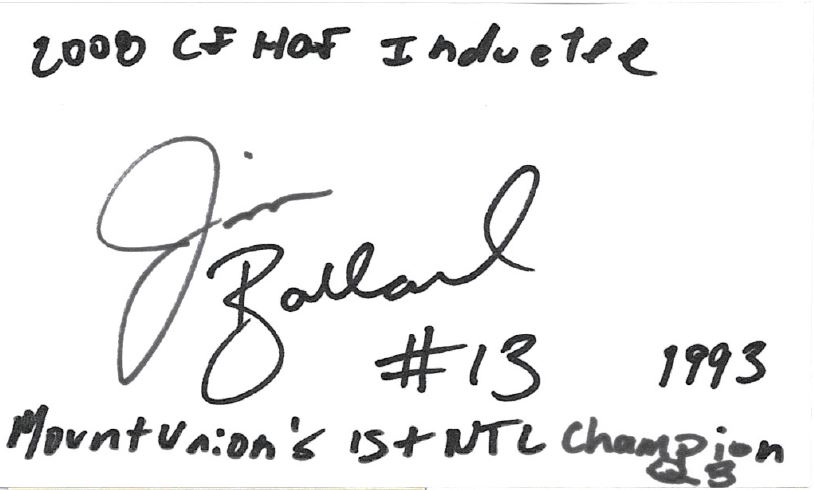 2008 CF HOF Inductee
Jim
Ballard
#13 1993
Mount Union's 1st NTL Champion
QB